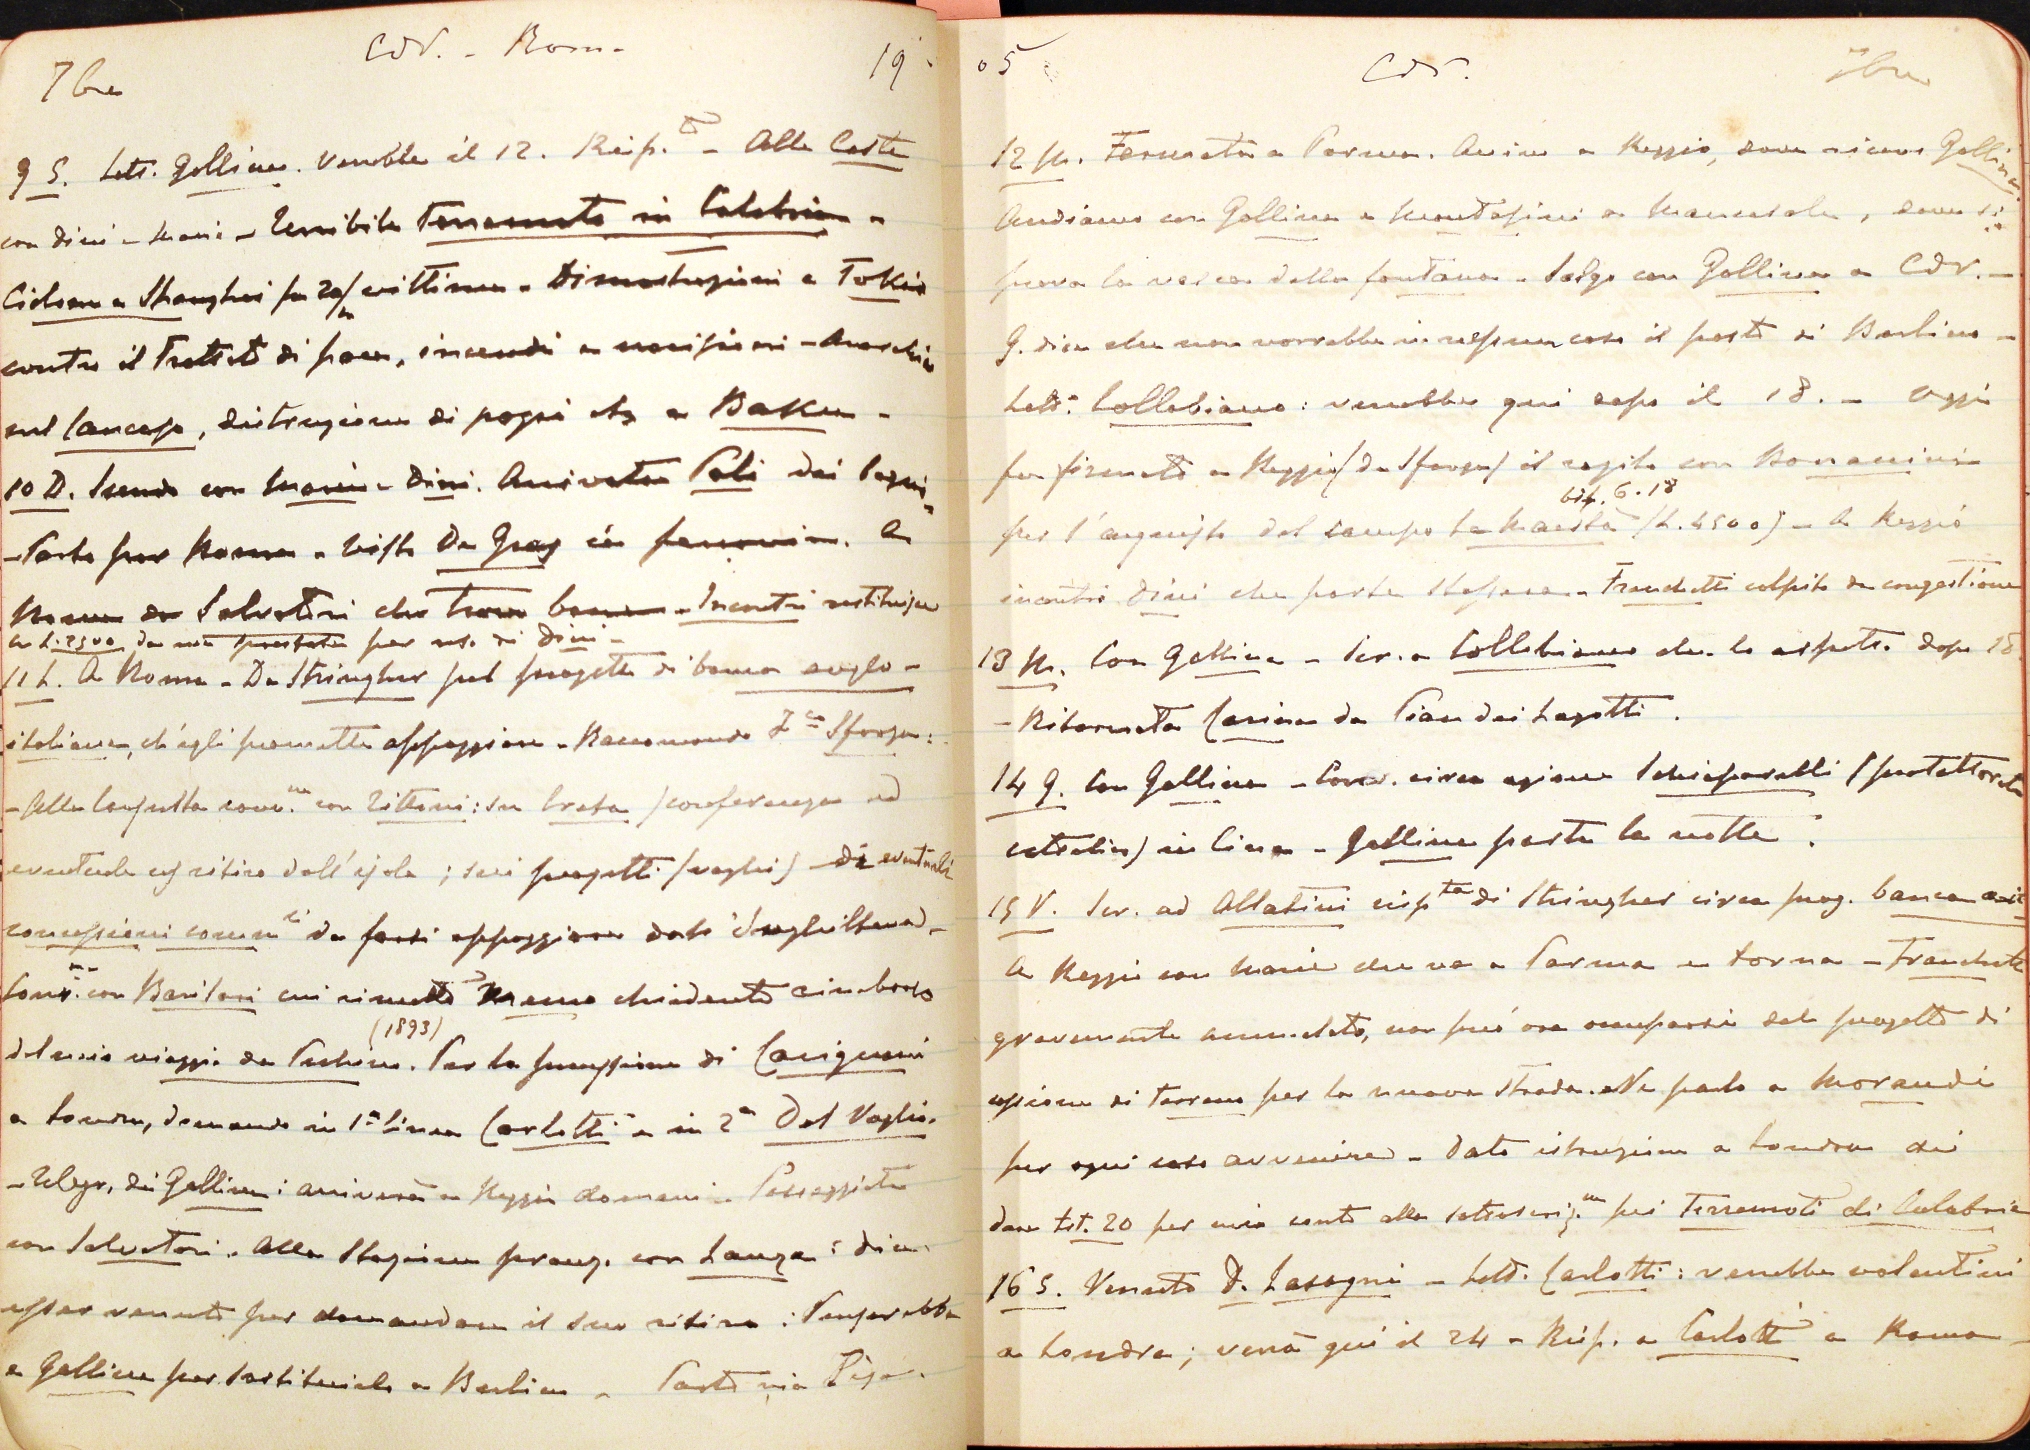 CdV. - Roma
7bre
19
9 S. Lett. Gallina. Verrebbe il 12. Risp.to - Alle Coste
con Dini - Maria - Terribile Terremoto in Calabria -
Ciclone a Shanghai fa 20/m vittime - Dimostrazioni a Tokio
contro il Trattato di pace, incendi e uccisioni - Anarchia
nel Caucaso, distruzione di pozzi etc a Baku -
10 D. Scendo con Maria - Dini. Arrivata Poli dai
- Parto per Roma - Visto De Gray in ferrovia. A
Roma da Salvatori che trovo bene - Incontri restituisce
a L. 2500 da me prestate per uso di Dini -
11 L. A Roma - Da Stringher pel progetto di banca anglo-
italiana, ch'egli promette appoggiare - Raccomando Sforza:
- Alla Consulta conv.ne con Tittoni: su Creta (conferenza ed
eventuale ritiro dall'isola; suoi progetti (vaghi) di eventuali
concessioni comm.li da farsi appoggiare dall'Inghilterra -
Conv.ne con Barilari cui rimetto Memo chiedente rimborso
(1893)
del mio viaggio da Pechino. Per la successione di Carignani
a Londra, domando in 1a linea Carlotti e in 2a Dal Vaglio.
- Telegr. di Gallina: arriverà a Reggio domani - Passeggiata
con Salvatori. Alla Stazione pranzo con Lanza: dice
esser venuto per domandare il suo ritiro: Penserebbe
a Gallina per sostituirlo a Berlino - Parto via Pisa.
05
CdV.
7bre
12 M. Fermata a Parma. Arrivo a Reggio, dove viene Gallina
Andiamo con Gallina e Montasini a Mancasale, dove si
prova la vasca della fontana - Salgo con Gallina a CdV. -
G. dice che non vorrebbe in nessun caso il posto di Berlino -
Lett. Collobiano: verrebbe qui dopo il 18. - Oggi
fu firmato a Reggio (da Sforza) il rogito con Bonaccini
bif. 6.18
per l'acquisto del campo La Maestà (L. 4500) - A Reggio
incontro Dini che parte stassera - Franchetti colpito da congestione
13 M. Con Gallina - Scr. a Collobiano che lo aspetto dopo 18.
- Ritornata Carina da Pian dei Lagotti.
14 G. Con Gallina - Conv. circa azione Schiaparelli (protettorato
cattolico) in Cina - Gallina parte la notte.
15 V. Scr. ad Allatini risp.ta di Stringher circa prog. banca
A Reggio con Maria che va a Parma e torna - Franchetti
gravemente ammalato, non può ora occuparsi del progetto di
cessione di terreno per la nuova strada. Ne parlo a Morandi
per ogni caso avvenire - Dato istruzione a Londra di
dare Lst. 20 per mio conto alla sottoscriz.ne pei Terremoti di Calabria
16 S. Venuto D. Lasagni - Lett. Carlotti: verrebbe volentieri
a Londra; verrà qui il 24 - Risp. a Carlotti a Roma -